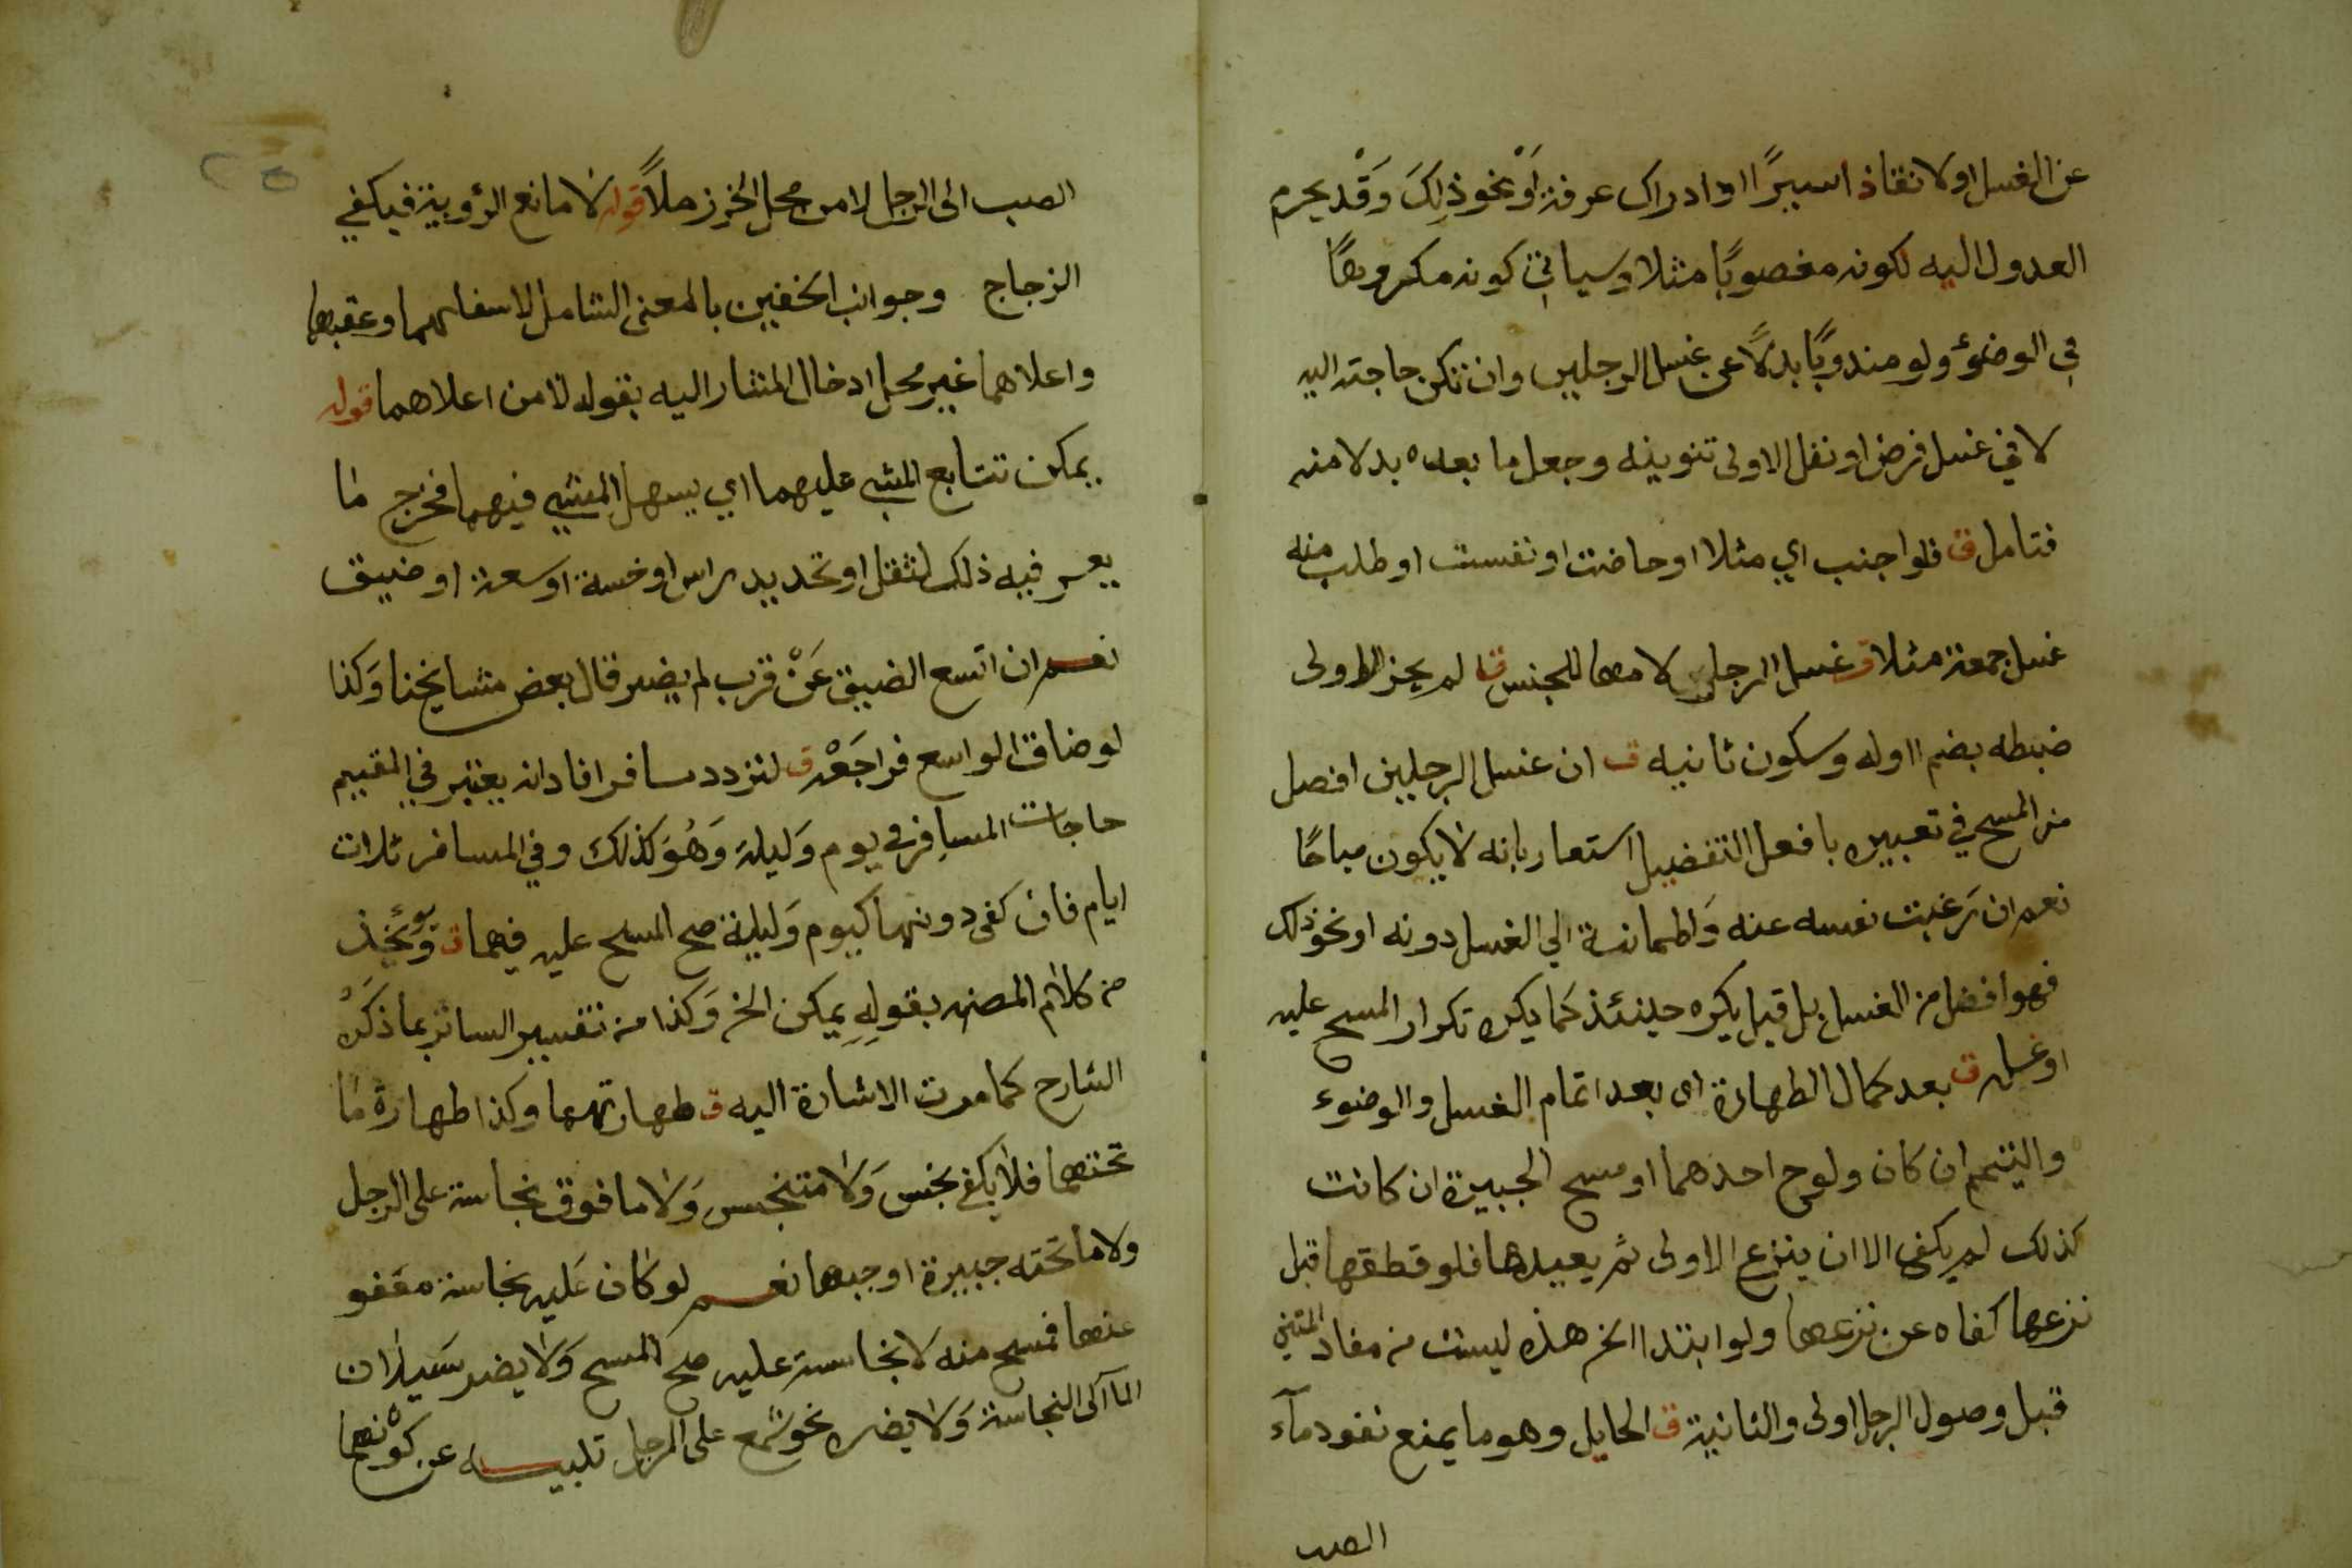 عن الغسل او لانقاذ اسيرًا او ادراك عرفة اوْ نحو ذلِكَ وَقْد يحرم
العدول اليه لكونه مغصوبًا مثلا وسياتي كونه مكروهًا
في الوضوء ولو مندوبًا بدلًا عن غسل الرجلين وان تكن حاجته اليه
لا في غسل فرض او نفل الاولى تنوينه وجعل ما بعده بدلا منه
فتامل ق فلو اجنب اي مثلا او حاضت او نفست او طلب منه
غسل جمعة مثلا ق غسل الرجلين لامها للجنس ق لم يجز الاولى
ضبطه بضم اوله وسكون ثانيه ق ان غسل الرجلين افضل
من المسح في تعبيره بافعل التفضيل استعار بانه لا يكون مباحًا
نعم ان رَغبت نفسه عنه وَاطمانة الي الغسل دونه او نحو ذلك
فهو افضل من الغسل بل قيل يكره حينئذ كما يكره تكرار المسح عليه
او غسله ق بعد كمال الطهارة اى بعد اتمام الغسل والوضوء
والتيمم ان كان ولوح احدهما او مسح الجبيرة ان كانت
كذلك لم يكفى الا ان ينزع الاولى ثم يعيدها فلو قطقها قبل
نزعها كفاه عن نزعها ولو ابتدا الخ هذه ليست من مفاد المتن
قبل وصول الرجل اولى والثانية ق الحايل وهو ما يمنع نفود مآء
الصب
الصب الى الرجل لا من محل الخرز مِلاً قوله لا مانع الرؤوية فيكفي
الزجاج وجوانب الخفين بالمعنى الشامل لاسفلهما وعقبها
واعلاهما غير محل ادخال المشار اليه بقوله لا من اعلاهما قوله
يمكن تتابع المشي عليهما اي يسهل المشي فيهما فخرج ما
يعسر فيه ذلك لثقل او تحديد راس او خسة او سعة او ضيق
نعم ان اتسع الضيق عَنْ قرب لم يضر قال بعض مشايخنا وَكذا
لو ضاق الواسع فراجَعْه ق لتردد مسافر افاد انه يعتبر في المقيم
حاجات المسافر في يوم وَليلة وَهُوَ كذلك وفي المسافر ثلاث
ايام فان كفى دونها كيوم وَليلة صح المسح عليه فيهما ق وَيؤخذ
من كلام المصنف بقولِهِ يمكن الخ وَكذا من تفسير الساتر بما ذكَرْه
الشارح كما مرت الاشارة اليه ق طهارتهما وكذا طهارة ما
تحتهما فلا يكفي نجس وَلا متنجس وَلا ما فوق نجاسة على الرجل
ولا ما تحته جبيرة اوجبها نعم لو كان عَليه نجاسة معَفو
عنها فمسح منه لا نجاسة عليه صح المسح وَلا يضر سَيلان
المآ الى النجاسة وَلا يضر نحو شمع على الرجل تلبيسه عن كوْنهما